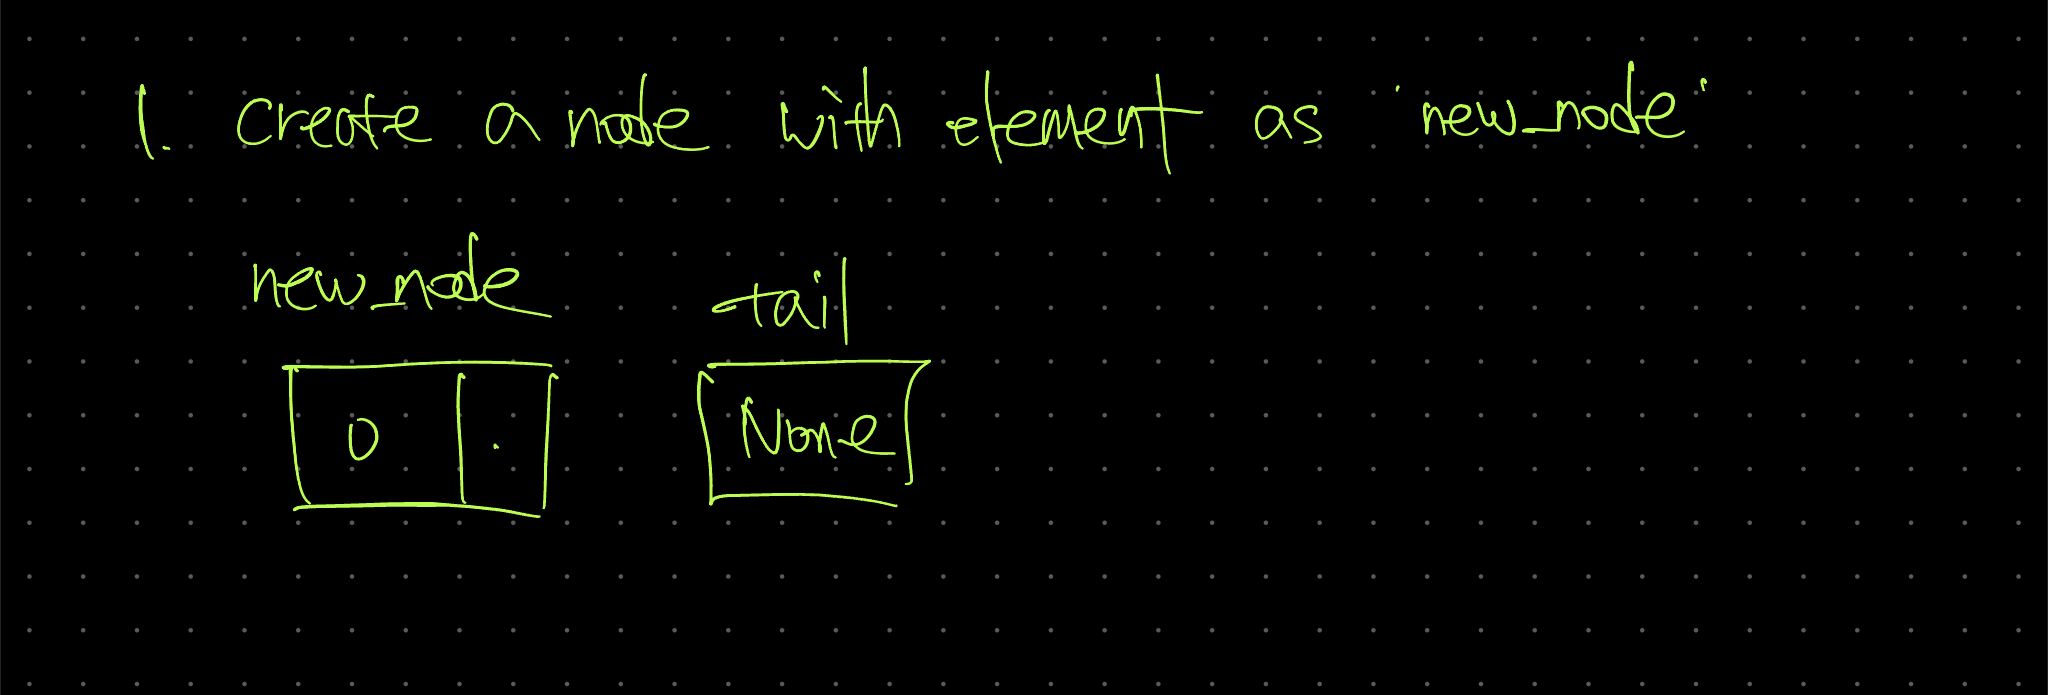 1. create a node with element as 'new_node'
new_node tail
0 . None